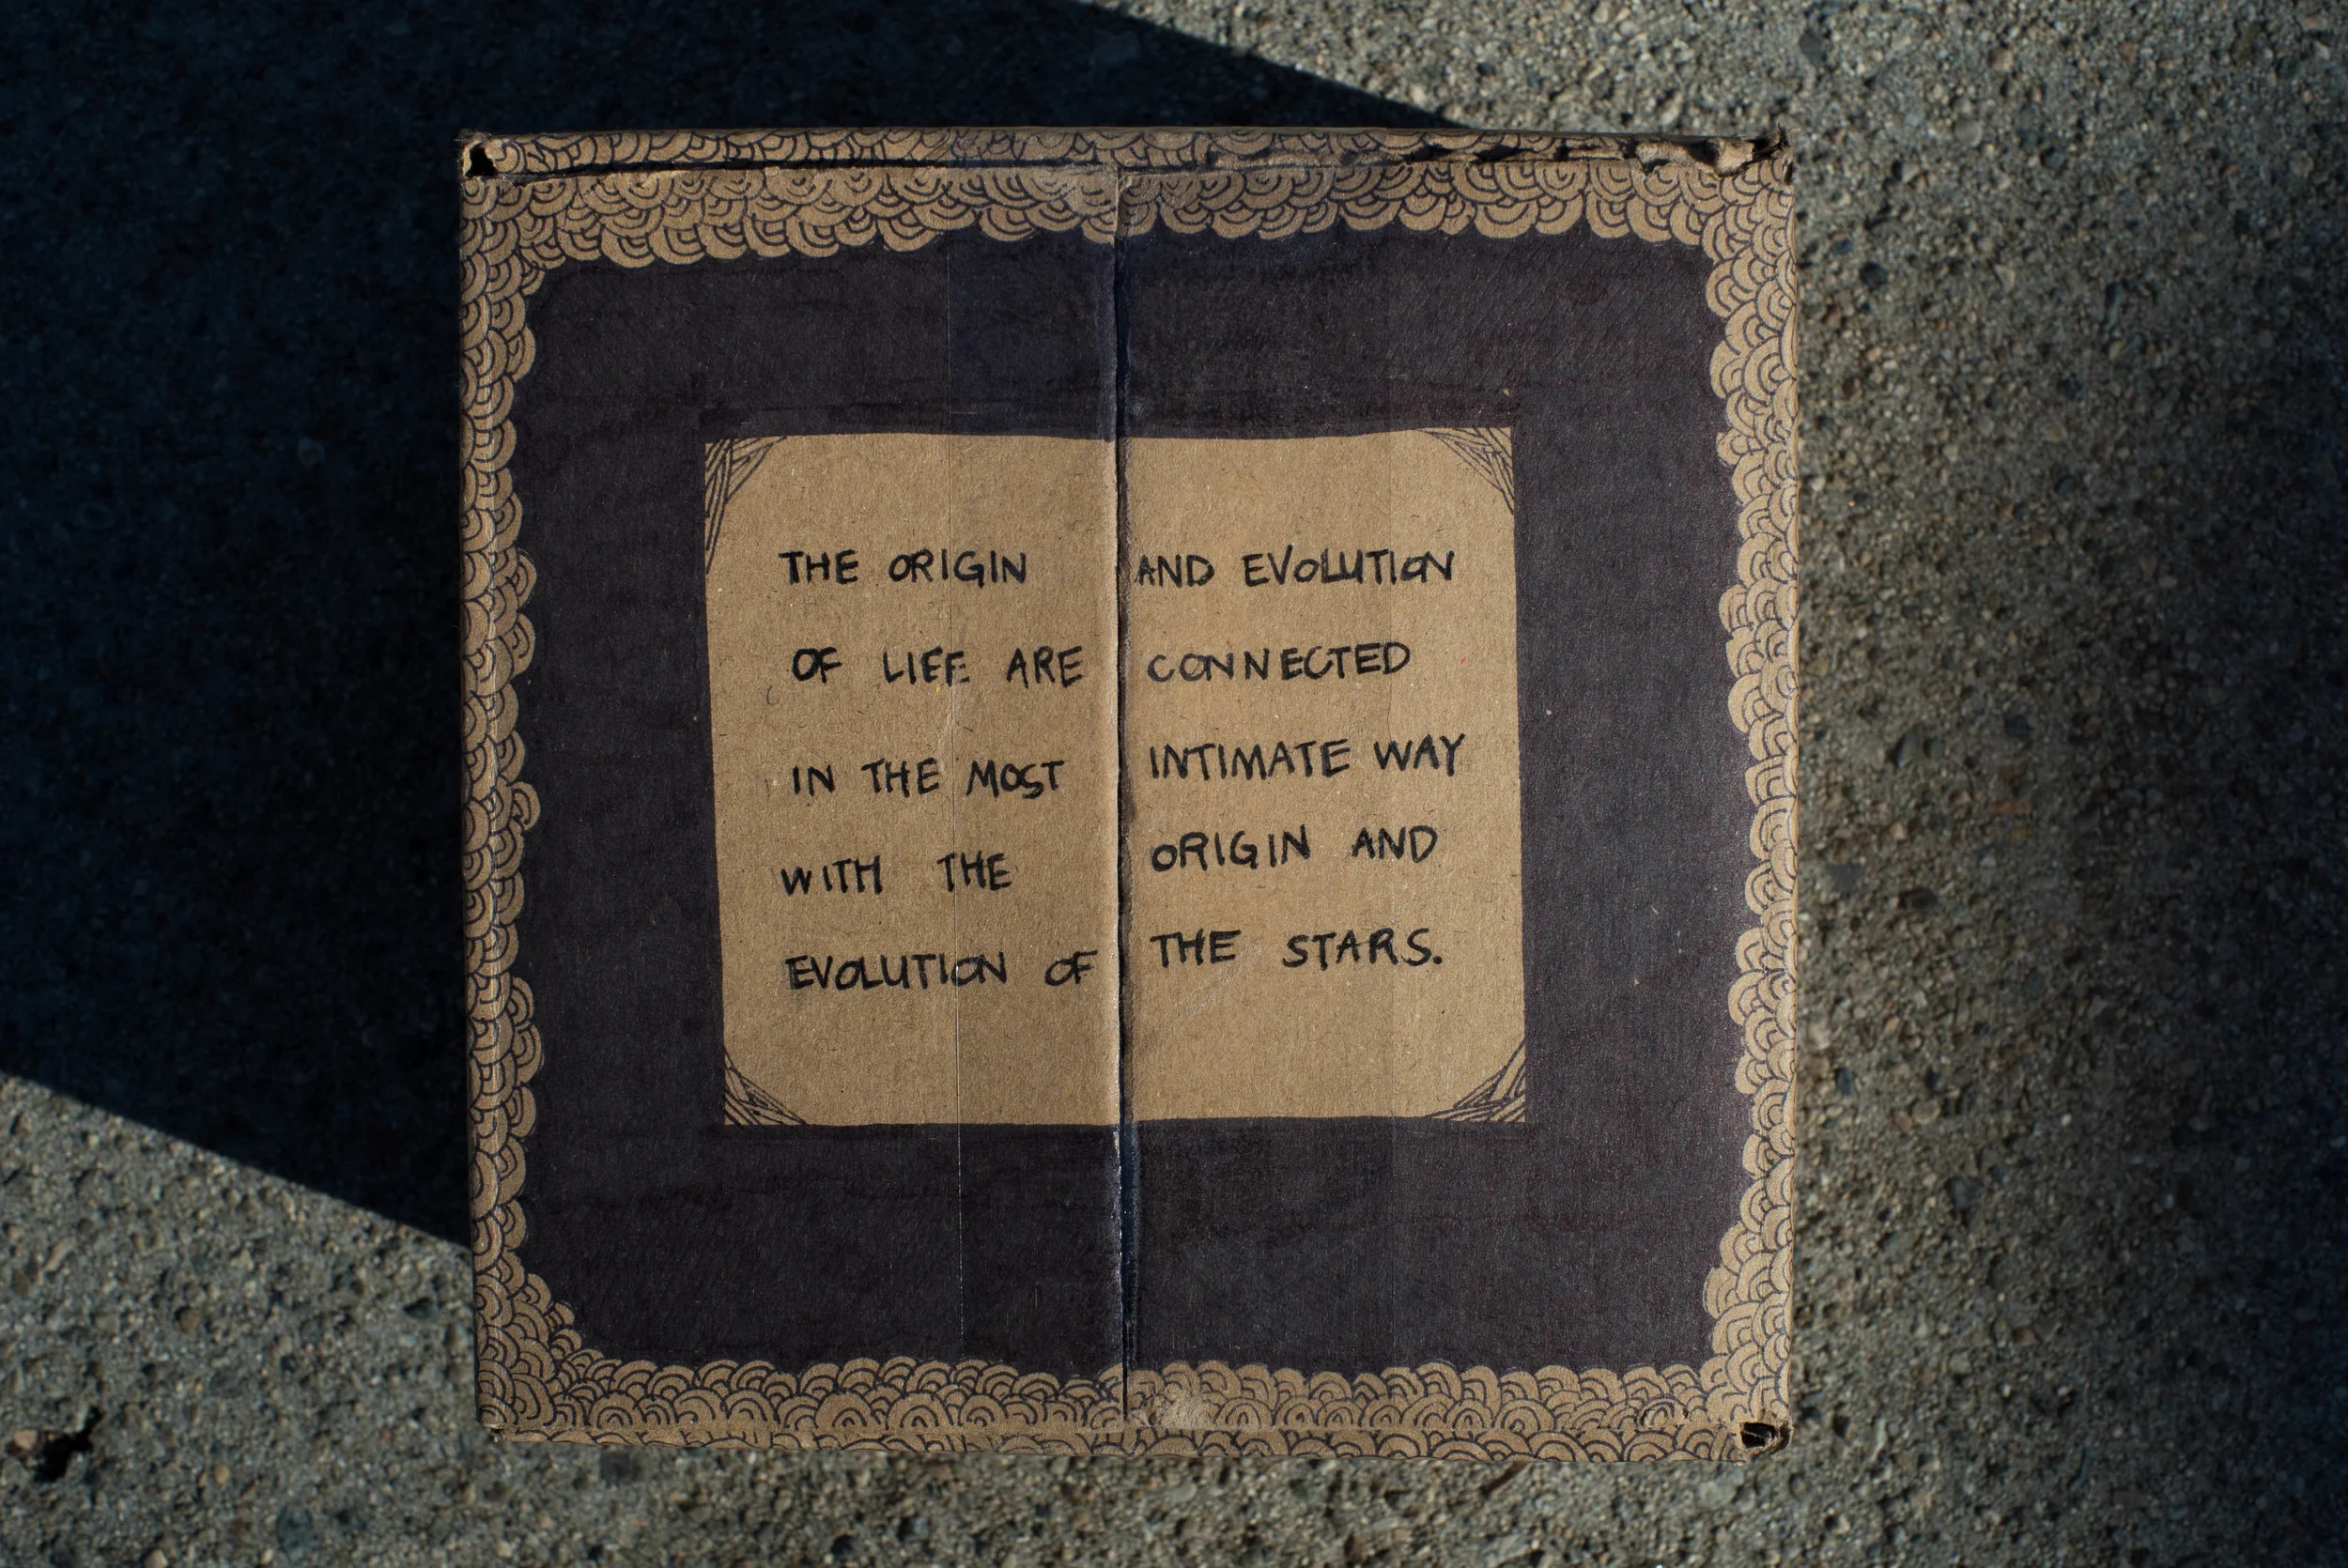 THE ORIGIN AND EVOLUTION
OF LIFE ARE CONNECTED
IN THE MOST INTIMATE WAY
WITH THE ORIGIN AND
EVOLUTION OF THE STARS.